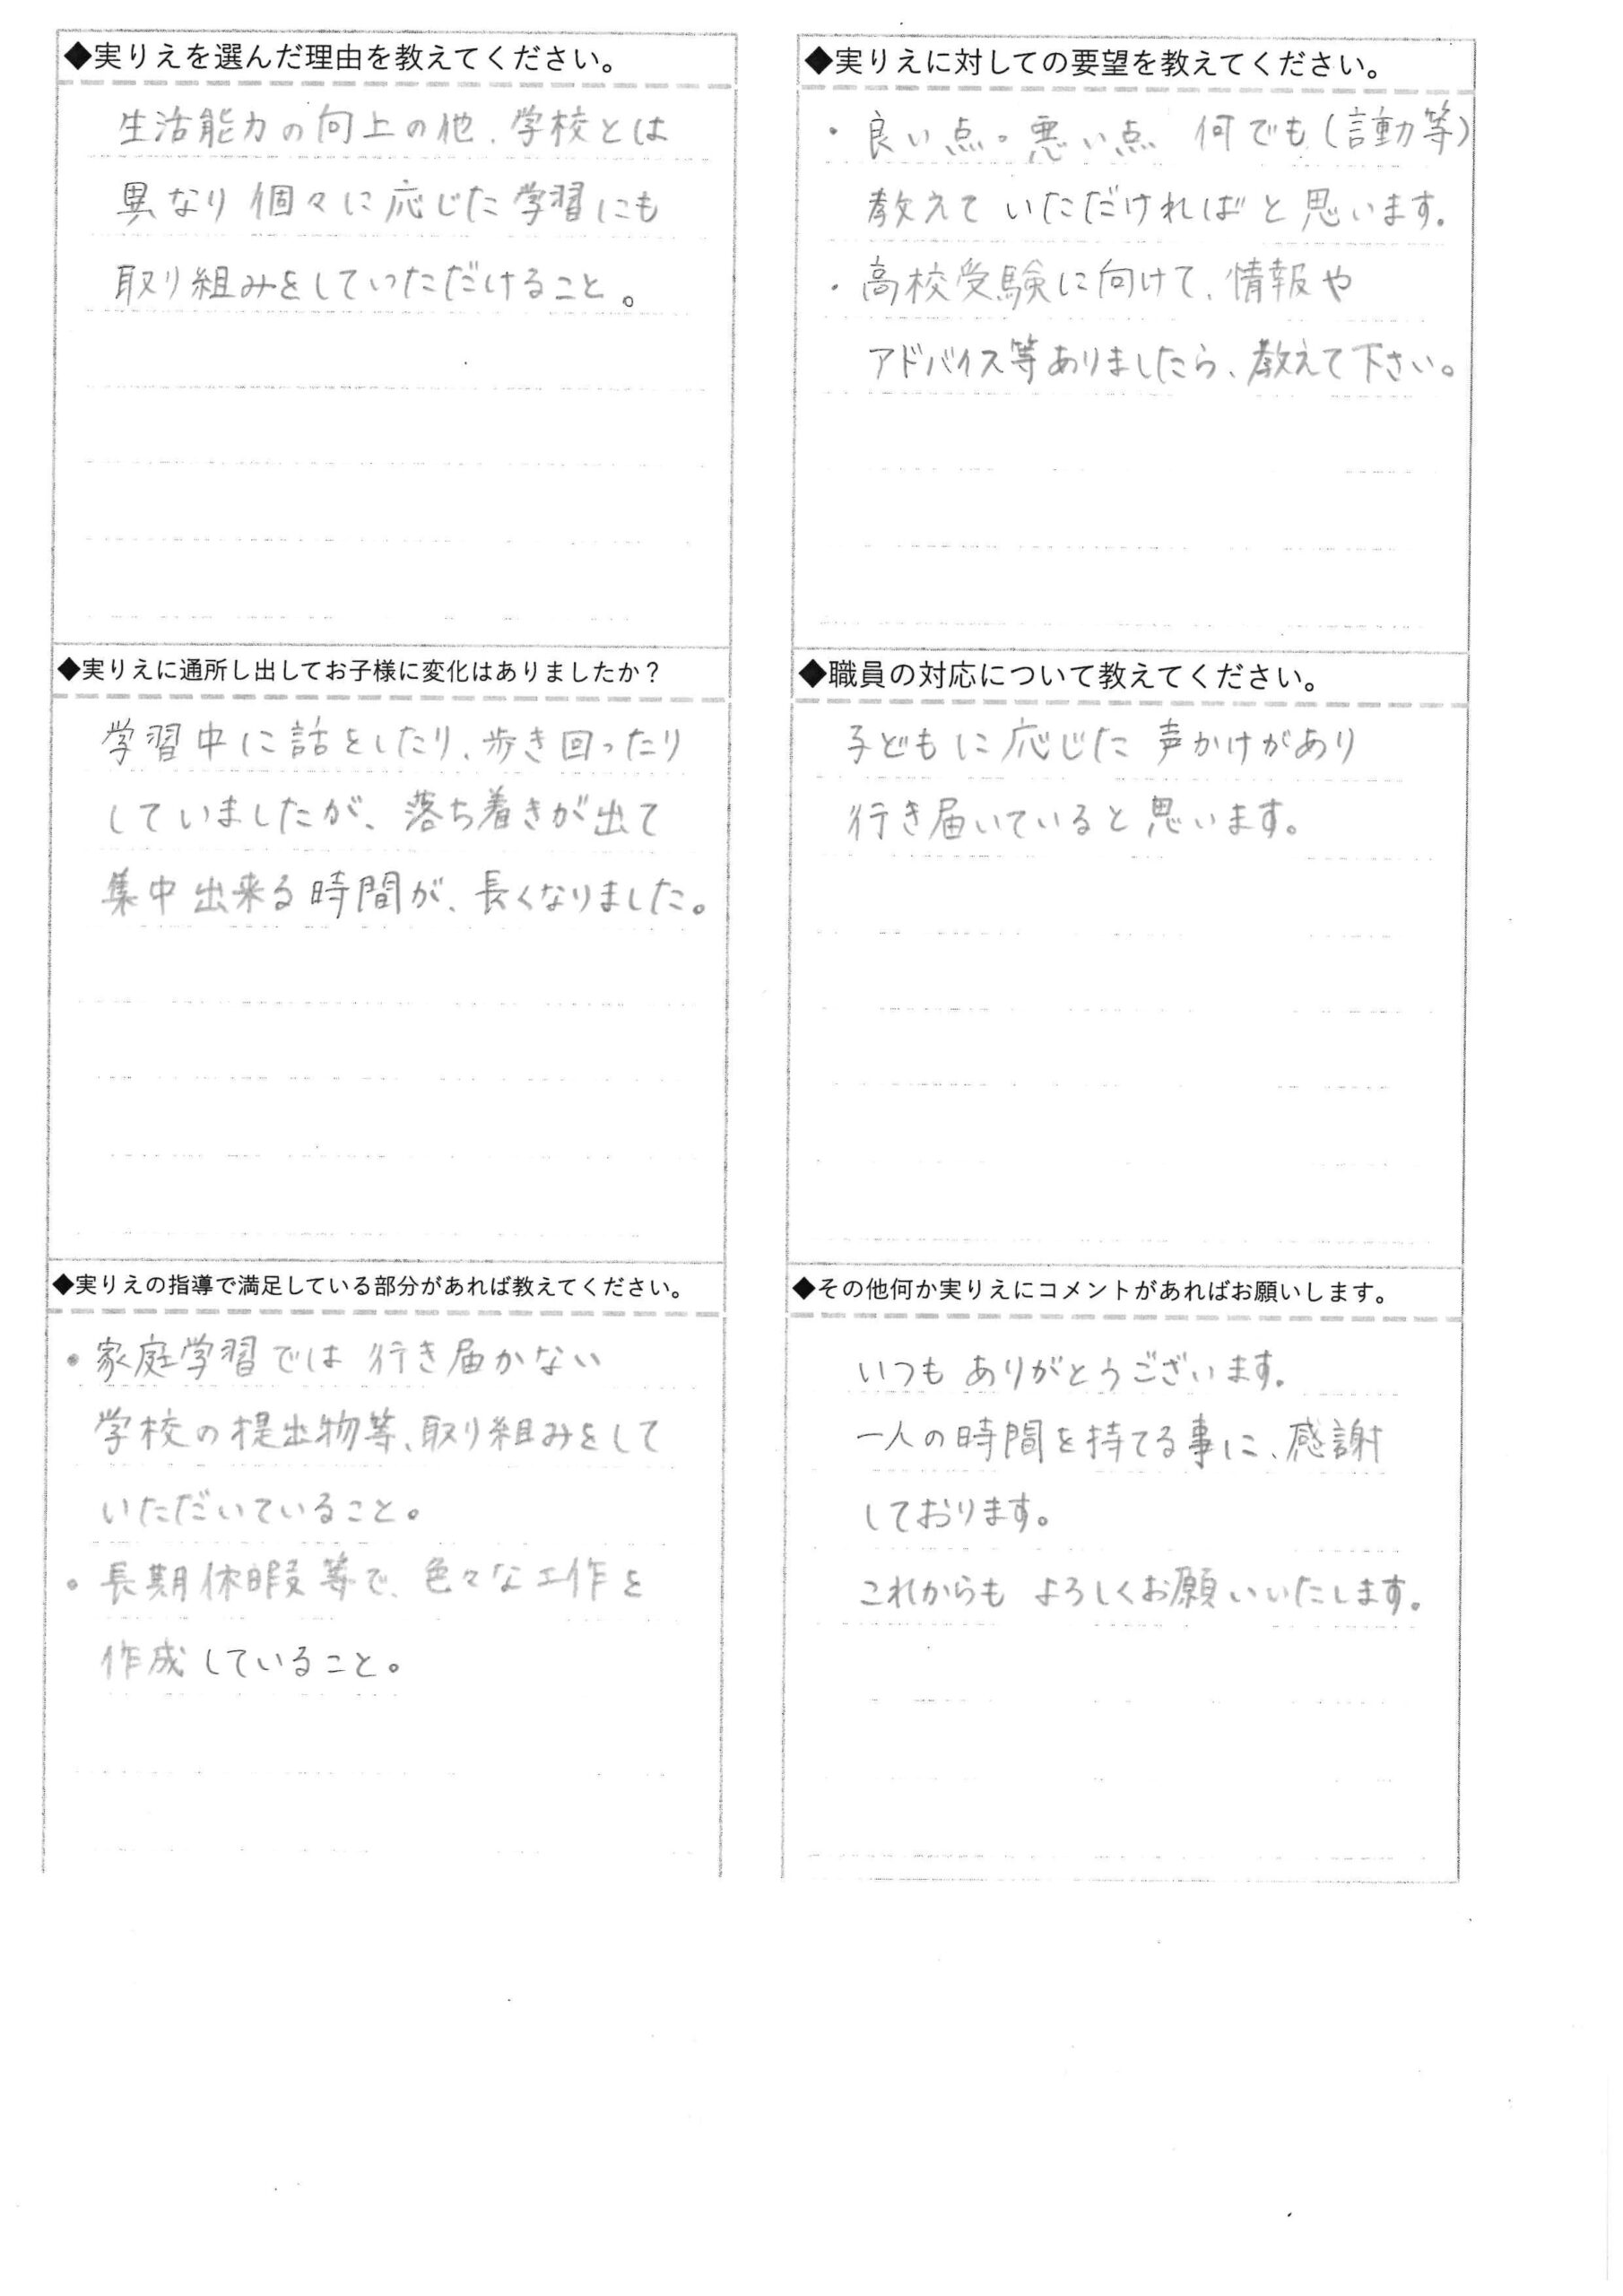 ◆実りえを選んだ理由を教えてください。
生活能力の向上の他、学校とは
異なり個々に応じた学習にも
取り組みをしていっただけること。
◆実りえに通所し出してお子様に変化はありましたか？
学習中に話をしたり、歩き回ったり
していましたが、落ち着きが出て
集中出来る時間が、長くなりました。
◆実りえの指導で満足している部分があれば教えてください。
・家庭学習では行き届かない
学校の提出物等、取り組みをして
いただいていること。
・長期休暇等で、色々な工作を
作成していること。
◆実りえに対しての要望を教えてください。
・良い点・悪い点 何でも(言動等)
教えていただければと思います。
・高校受験に向けて、情報や
アドバイス等ありましたら、教えて下さい。
◆職員の対応について教えてください。
子どもに応じた声かけがあり
行き届いていると思います。
◆その他何か実りえにコメントがあればお願いします。
いつもありがとうございます。
一人の時間を持てる事に、感謝
しております。
これからもよろしくお願いいたします。